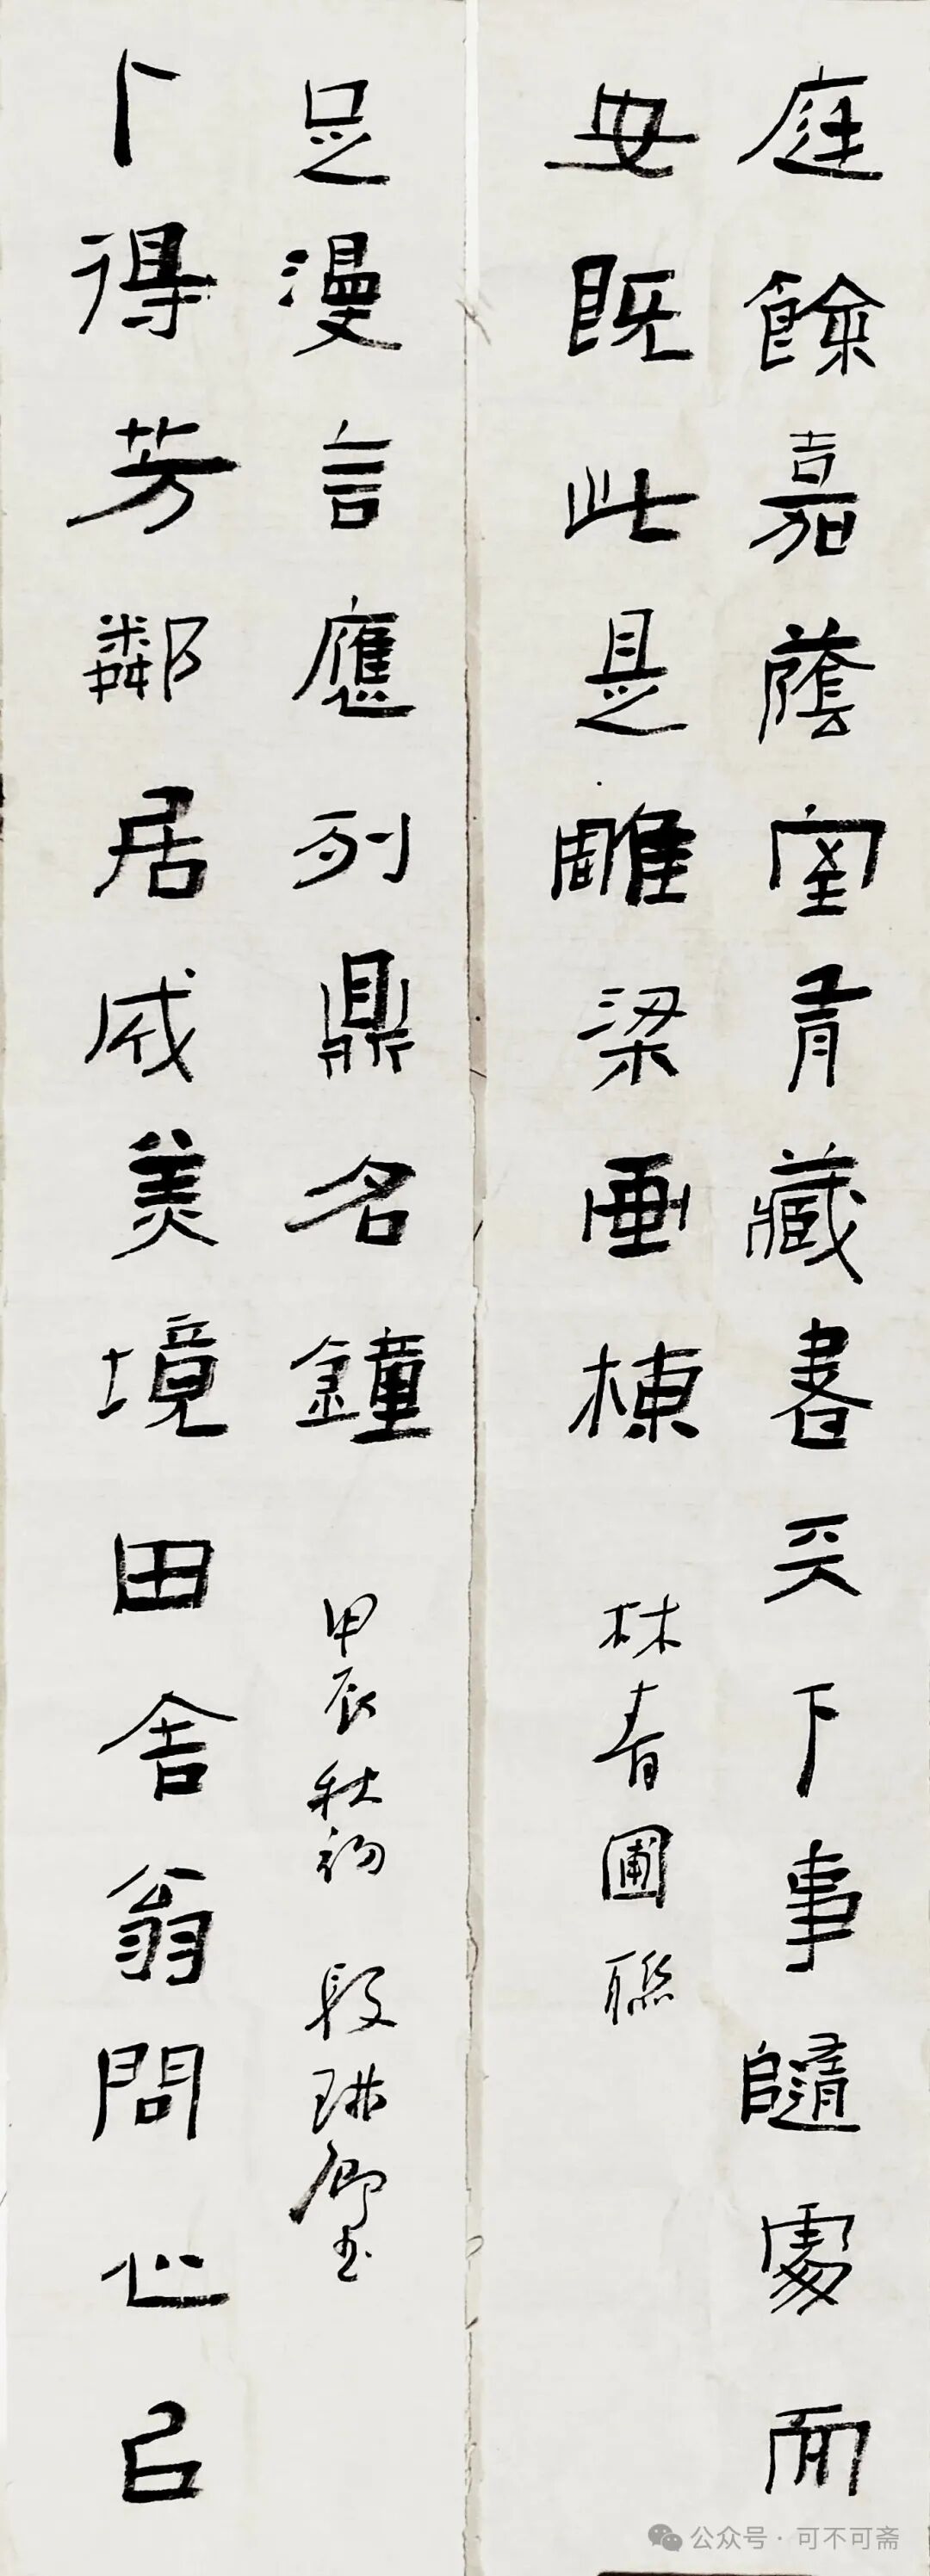 庭餘嘉蔭室有藏書天下事隨處而
安既此是雕梁画棟
林青圃聯
卜得芳鄰居成美境田舍翁問心已
足漫言應列鼎名鐘
甲辰秋初 段琳卿书
公众号·可不可斋